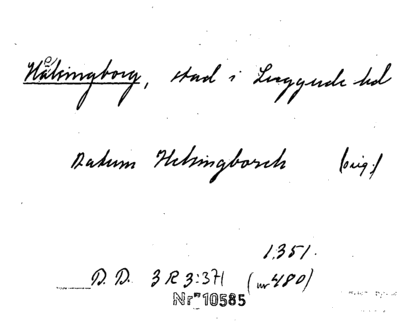 Hälsingborg, stad i Luggude hd
Datum Helsingborch (orig.)
1351.
D. D. 3 R 3:371 (nr 480)
Nr 10585